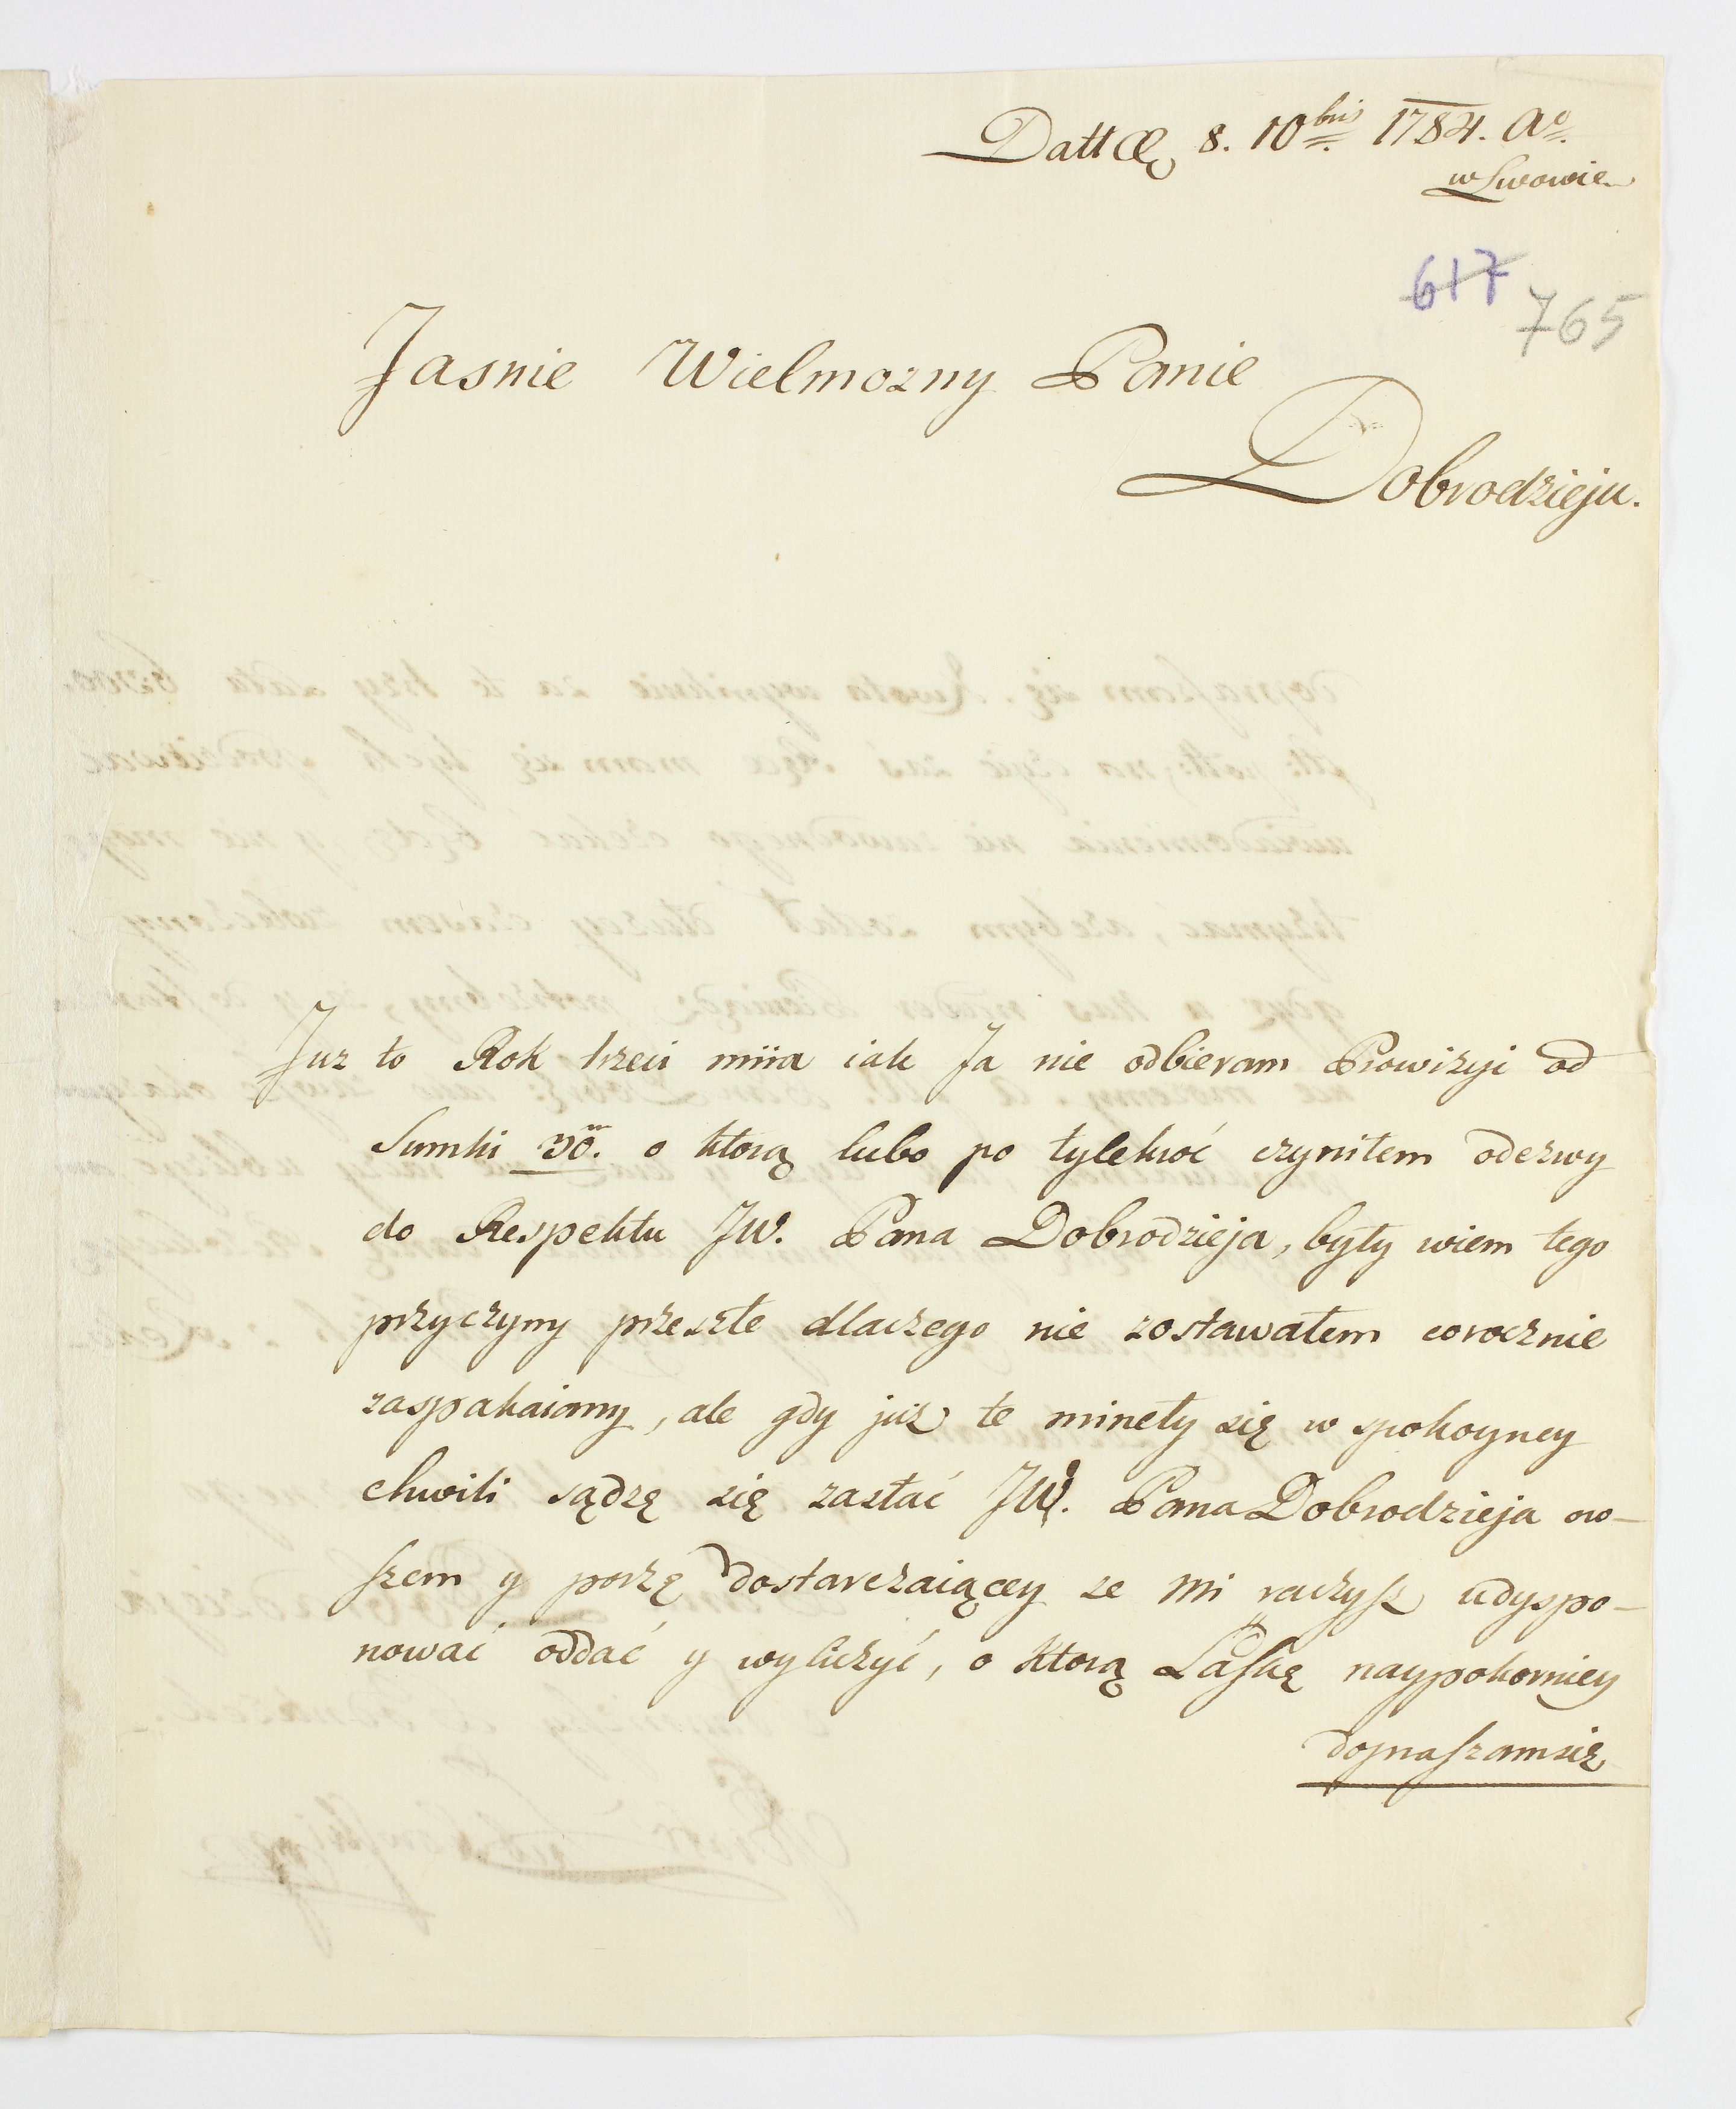 Dattæ 8. 10bris 1784. Ao.
w Lwowie
617 765
Jasnie Wielmozny Panie
Dobrodzieju.
Juz to Rok trzeci miia iak Ja nie odbieram Prowizyi od
Sumki 30.m o ktorą lubo po tylekroć czyniłem odezwy
do Respektu JW. Pana Dobrodzieja, były wiem tego
przyczyny przeszłe dlaczego nie zostawałem corocznie
zaspakaiany, ale gdy już te mineły się w spokoyney
chwili sądzę się zastać JW. Pana Dobrodzieja ow-
szem y porzę dostarczaiącey ze mi raczysz udyspo-
nować oddać y wyliczyć, o ktorą Łaskę naypokorniey
dopraszam się